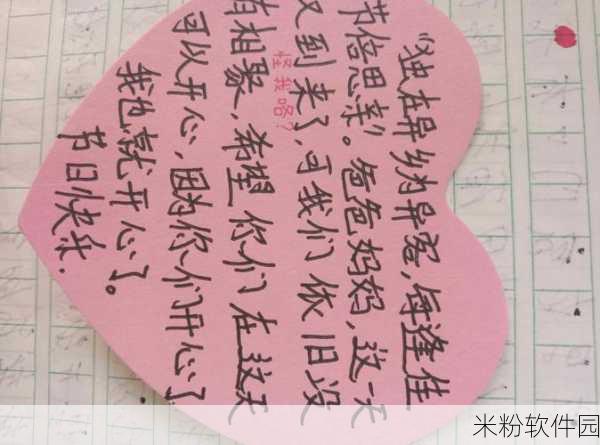 “独在异乡为异爱,每逢佳
节倍思亲”。爸爸妈妈,这一天
又到来了,可我们依旧没
怪我咯?
有相聚,希望你们在这天
可以开心,因为你们开心了
我也就开心了。
节日快乐.
米粉软件园